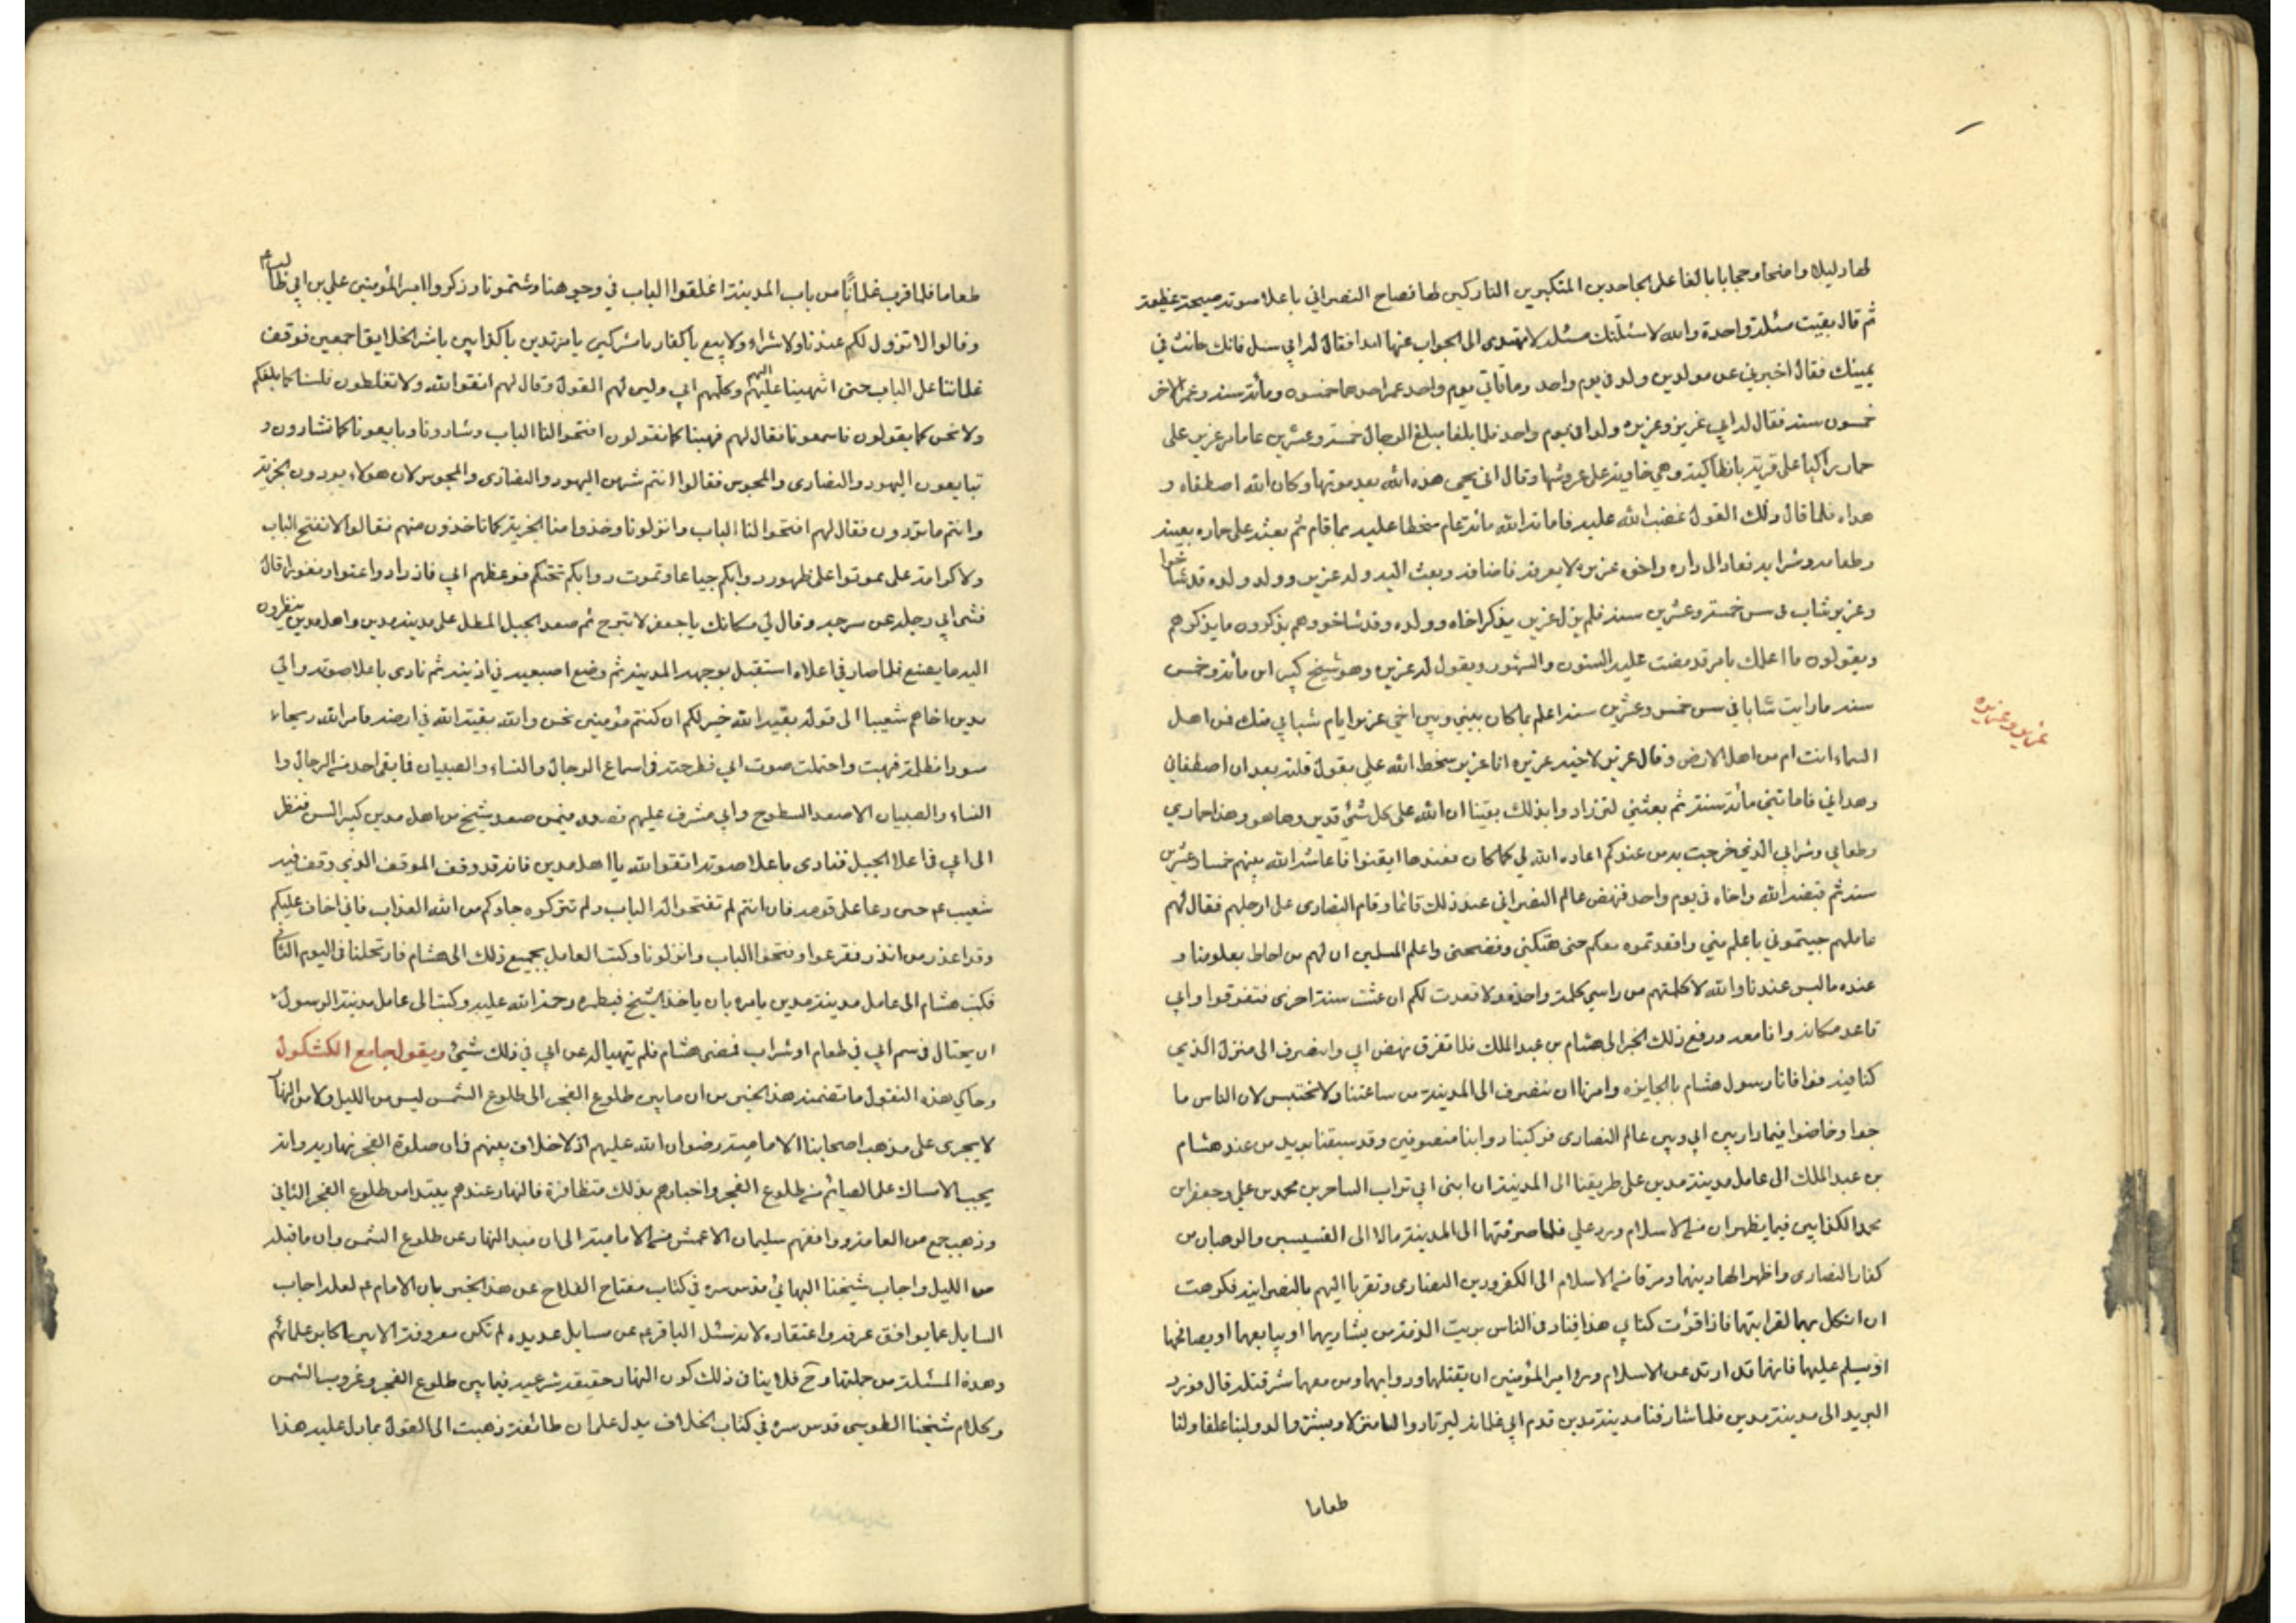 لها دليلا واضحا وحجابا بالغا على الجاحدين المتكبرين التاركين لها فصاح النصراني باعلا صوته صيحة عظيمة
ثم قال بقيت مسئلة واحدة والله لاسئلنك مسئلة لا تهتدى الى الجواب عنها ابدا فقال له ابي سل فانك حانث في
يمينك فقال اخبرني عن مولدين ولد في يوم واحد وماتا في يوم واحد عمر احدهما خمسون ومأته سنه وعمر الاخر
خمسون سنه فقال له ابي عزير وعزيره ولدا في يوم واحد فلما بلغا مبلغ الرجال خمسة وعشرين عاما مر عزير على
حماره راكبا على قرية بانطاكية وهي خاوية على عروشها وقال انى يحيى هذه الله بعد موتها وكان الله اصطفاه و
هداه فلما قال ذلك القول غضب الله عليه فاماته الله مائة عام سخطا عليه بما قام ثم بعثه على حماره بعينه
وطعامه وشرابه فعاد الى داره واخوه عزيره لا يعرفه فاضافه وبعث اليه ولد عزير وولد ولده قد شاخوا
وعزير شاب في سن خمسة وعشرين سنه فلم يزل عزير يذكر اخاه وولده وقد شاخوا وهم يذكرون ما يذكرهم
ويقولون ما اعلمك بامر قد مضت عليه السنون والشهور ويقول له عزيره وهو شيخ كبير ابن مأته وخمس
سنه ما رايت شابا في سن خمس وعشرين سنه اعلم بما كان بيني وبين اخي عزير ايام شبابي منك فمن اهل
السماء انت ام من اهل الارض وقال عزير لاخيه عزيره انا عزير سخط الله علي بقول قلته بعد ان اصطفاني
وهداني فاماتني مأته سنه ثم بعثني لتزدادوا بذلك يقينا ان الله على كل شئ قدير وها هو وهذا حماري
وطعامي وشرابي الذي خرجت به من عندكم اعاده الله لي كما كان فعندها ايقنوا فاعاشه الله بينهم خمسا وعشرين
سنه ثم قبضه الله واخاه في يوم واحد فنهض عالم النصراني عند ذلك قائما وقام النصارى على ارجلهم فقال لهم
عاملهم جيتموني باعلم مني واقعدتموه معكم حتى هتكني وفضحني واعلم المسلمين ان لهم من احاط بعلومنا و
عنده ما ليس عندنا والله لا كلمتهم من راسي كلمة واحدة ولا قعدت لكم ان عشت سنة اخرى فتفرقوا وابي
قاعد مكانه وانا معه ورفع ذلك الخبر الى هشام بن عبد الملك فلما تفرق نهض ابي وانصرف الى منزل الذي
كنا فيه فوافانا رسول هشام بالجايزه وامرنا ان ننصرف الى المدينة من ساعتنا ولا نحتبس لان الناس ما
جوا وخاضوا فيما دار بين ابي وبين عالم النصارى فركبنا دوابنا منصرفين وقد سبقنا بريد من عند هشام
بن عبد الملك الى عامل مدينة مدين على طريقنا الى المدينة ان ابني ابي تراب الساحرين محمد بن علي وجعفر بن
محمد الكذابين فيما يظهران من الاسلام ورد علي فلما صرفتهما الى المدينة مالا الى القسيسين والرهبان من
كفار النصارى واظهرا لها دينهما ومرقا من الاسلام الى الكفر ودين النصارى وتقربا اليهم بالنصرانيه فكرهت
ان انكل بهما لقرابتهما فاذا قرأت كتابي هذا فناد في الناس بريت الذمة من يشاريهما او يبايعهما او يصافحهما
او يسلم عليهما فانهما قد ارتدا عن الاسلام ويرى امير المؤمنين ان يقتلهما ودوابهما ومن معهما شر قتله قال فورد
البريد الى مدينة مدين فلما شارفنا مدينة مدين قدم ابي غلمانه ليرتادوا لنا منزلا ويشتروا لدوابنا علفا ولنا
طعاما
عزير وعزيره
طعاما فلما قرب غلماننا من باب المدينة اغلقوا الباب في وجوهنا وشتمونا وذكروا امير المؤمنين علي بن ابي طالب عم
وقالوا لا نزول لكم عندنا ولا شراء ولا بيع يا كفار يا مشركين يا مرتدين يا كذابين يا شر الخلايق اجمعين فوقف
غلماننا على الباب حتى انتهينا اليهم وكلمهم ابي ولين لهم القول وقال لهم اتقوا الله ولا تغلطون فلسنا كما بلغكم
ولا نحن كما يقولون فاسمعونا فقال لهم فهبنا كما تقولون افتحوا لنا الباب وشارونا وبايعونا كما تشارون و
تبايعون اليهود والنصارى والمجوس فقالوا انتم شر من اليهود والنصارى والمجوس لان هولاء يودون الجزية
وانتم ما تودون فقال لهم افتحوا لنا الباب وانزلونا وخذوا منا الجزية كما تاخذون منهم فقالوا لا نفتح الباب
ولا كرامة على يموتوا على ظهور دوابكم جياعا وتموت دوابكم تحتكم فوعظهم ابي فازدادوا عتوا ونفورا قال
فثنى ابي رجله عن سرجه وقال لي مكانك يا جعفر لا تبرح ثم صعد الجبل المطل على مدينه مدين واهل مدين ينظرون
اليه ما يصنع فلما صار في اعلاه استقبل بوجهه المدينة ثم وضع اصبعيه في اذنيه ثم نادى باعلا صوته والى
مدين اخاهم شعيبا الى قوله بقية الله خير لكم ان كنتم مؤمنين نحن والله بقية الله في ارضه فامر الله ريحا
سودا مظلمة فهبت واحتملت صوت ابي فطرحته في اسماع الرجال والنساء والصبيان فما بقى احد من الرجال وا
النساء والصبيان الا صعد السطوح وابي مشرف عليهم فصعد فيمن صعد شيخ من اهل مدين كبير السن فنظر
الى ابي في اعلا الجبل فنادى باعلا صوته اتقوا الله يا اهل مدين فانه قد وقف الموقف الذي وقف فيه
شعيب عم حين دعا على قومه فان انتم لم تفتحوا له الباب ولم تتركوه جاءكم من الله العذاب فاني اخاف عليكم
وقد اعذر من انذر ففزعوا وفتحوا الباب وانزلونا وكتب العامل بجميع ذلك الى هشام فارتحلنا في اليوم الثاني
فكتب هشام الى عامل مدينة مدين يامره بان ياخذ الشيخ فيطمره رحمة الله عليه وكتب الى عامل مدينة الرسول
ان يحتال في سم ابي في طعام او شراب فمضى هشام فلم يتهيا له عن ابي في ذلك شيئ ويقول جامع الكشكول
وحاكي هذه النقول ما تضمنه هذا الخبر من ان ما بين طلوع الفجر الى طلوع الشمس ليس من الليل ولا من النهار
لا يجرى على مذهب اصحابنا الامامية رضوان الله عليهم اذ لا خلاف بينهم في ان صلوة الفجر نهاريه وانه
يجب الامساك على الصائم من طلوع الفجر واخبارهم بذلك متظافرة فالنهار عندهم يبتدا من طلوع الفجر الثاني
وذهب جمع من العامة ووافقهم سليمان الاعمش من الامامية الى ان مبدا النهار عن طلوع الشمس وان ما قبله
من الليل واجاب شيخنا البهائي قدس سره في كتاب مفتاح الفلاح عن هذا الخبر بان الامام عم لعله اجاب
السايل عما يوافق عرفه واعتقاده لانه سئل الباقر عم عن مسايل عديده لم تكن معروفة الا بين اكابر علمائهم
وهذه المسئلة من جملتها وح فلا ينافى ذلك كون النهار حقيقه شرعيه فيما بين طلوع الفجر وغروب الشمس
وكلام شيخنا الطوسي قدس سره في كتاب الخلاف يدل على ان طائفة ذهبت الى القول بما دل عليه هذا